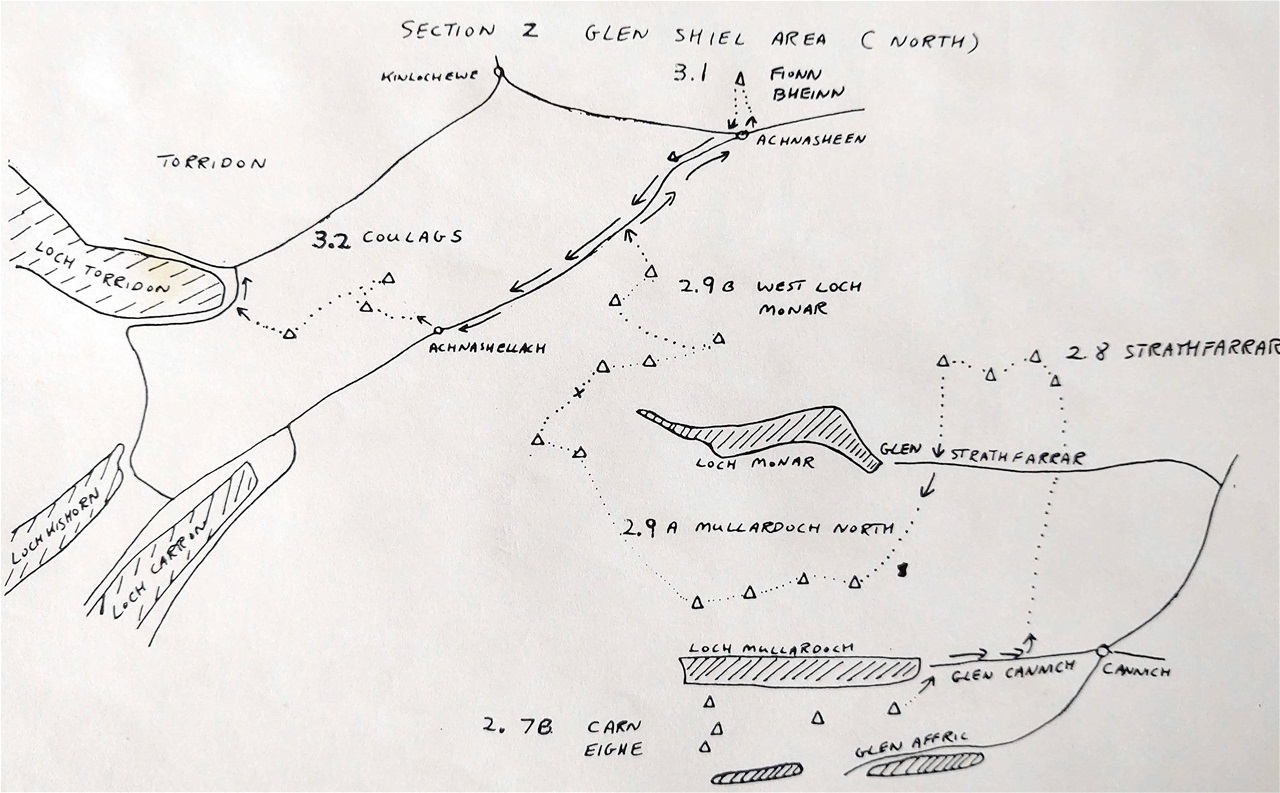 SECTION 2 GLEN SHIEL AREA (NORTH)
KINLOCHEWE
3.1 FIONN
BHEINN
ACHNASHEEN
TORRIDON
3.2 COULAGS
LOCH TORRIDON
2.9B WEST LOCH
MONAR
ACHNASHELLACH
2.8 STRATHFARRAR
LOCH MONAR
GLEN STRATHFARRAR
LOCH KISHORN
LOCH CARRON
2.9A MULLARDOCH NORTH
LOCH MULLARDOCH
GLEN CANNICH
CANNICH
2.7B CARN
EIGHE
GLEN AFFRIC